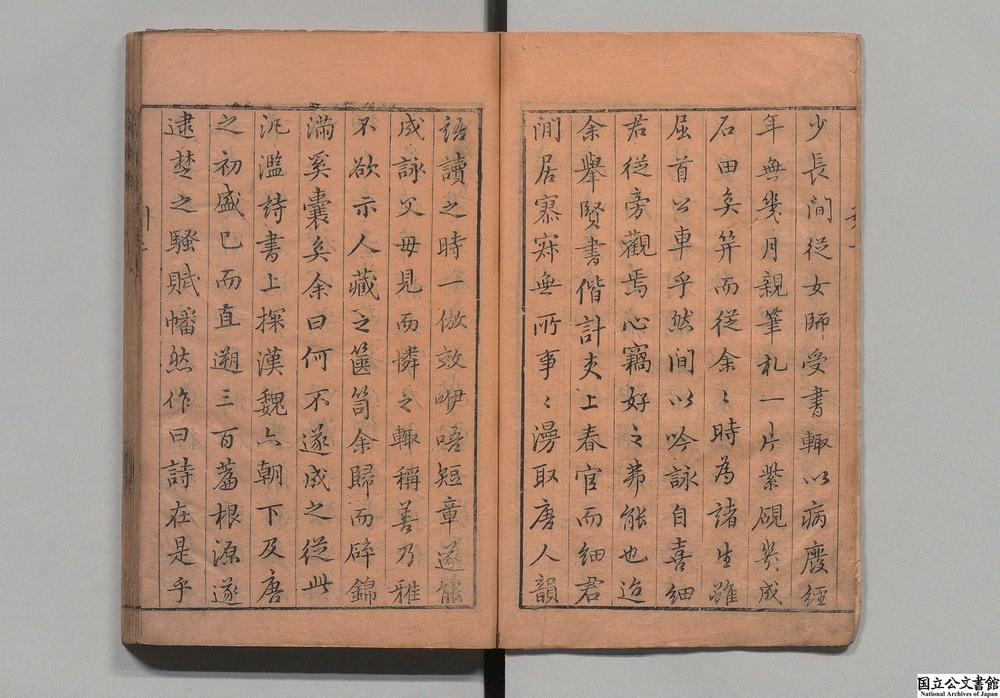 少長間從女師受書輒以病廢經
年無幾月親筆札一片紫硯幾成
石田矣笄而從余〻時為諸生雖
屈首公車乎然間以吟詠自喜細
君從旁觀焉心竊好之弗能也迨
余舉賢書偕計吏上春官而細君
閒居寡寐無所事〻漫取唐人韻
語讀之時一倣效咿唔短章遂能
成詠父毋見而憐之輒稱善乃雅
不欲示人藏之篋笥余歸而辟錦
滿奚囊矣余曰何不遂成之從此
汎濫詩書上探漢魏六朝下及唐
之初盛已而直遡三百蓄根源遂
逮楚之騷賦幡然作曰詩在是乎
国立公文書館
National Archives of Japan